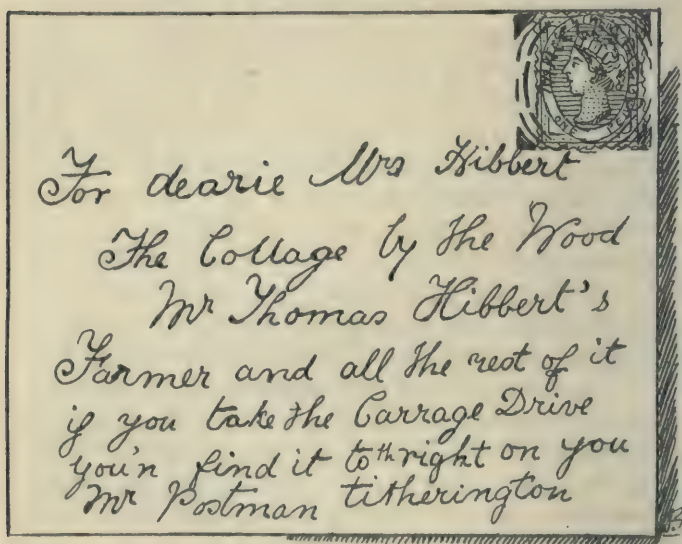 ONE PENNY
For dearie Mrs Hibbert
The Cottage by the Wood
Mr Thomas Hibbert's
Farmer and all the rest of it
if you take the Carrage Drive
you'n find it to th right on you
Mr Postman titherington